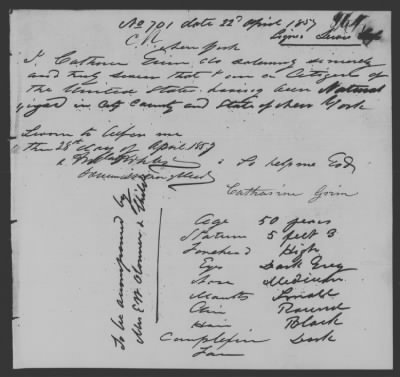 No 701 date 22d April 1857
C. N. New York
I, Catharine Grim do solemnly sincerely
and truly swear that I am a Citizen of
the United States having been Natural
ized in City County and State of New York
Sworn to before me
this 28th day of April 1857
So help me God
Catharine Grim
Age 50 years
Stature 5 feet 3
Forehead High
Eyes Dark Grey
Nose Medium
Mouth Small
Chin Round
Hair Black
Complexion Dark
Face
To be accompanied by
Mrs E W &